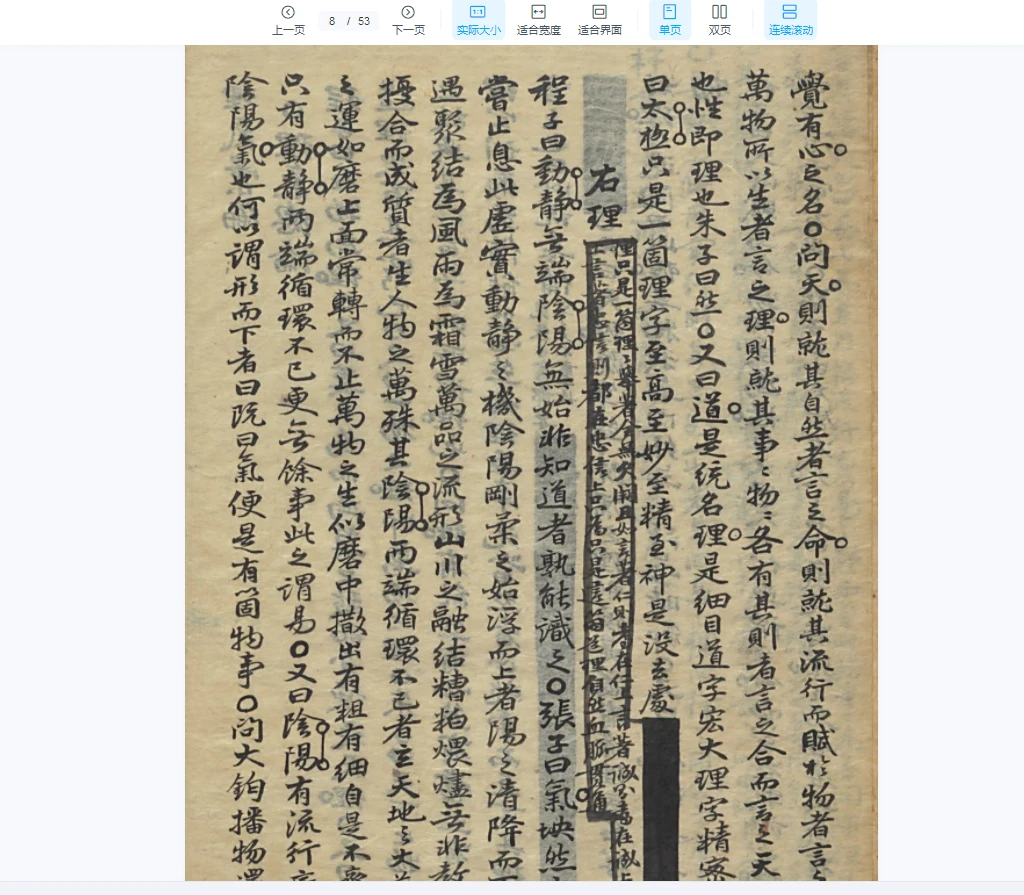 上一页
8 / 53
下一页
实际大小
适合宽度
适合界面
单页
双页
连续滚动
覺有心之名〇問天則就其自然者言之命則就其流行而賦於物者言之
萬物所以生者言之理則就其事〻物〻各有其則者言之合而言之天
也性即理也朱子曰然〇又曰道是統名理是細目道字宏大理字精密
曰太極只是一箇理字至高至妙至精至神是没去處
右理
程子曰動静無端陰陽無始非知道者孰能識之〇張子曰氣坱然
當止息此虚實動静之機陰陽剛柔之始浮而上者陽之清降而
遇聚結為風雨為霜雪萬品之流形山川之融結糟粕煨燼無非教
擾合而成質者生人物之萬殊其陰陽兩端循環不已者立天地之大
之運如磨上面常轉而不止萬物之生似磨中撒出有粗有细自是不齊
只有動静兩端循環不已更無餘事此之謂易〇又曰陰陽有流行
陰陽氣也何以謂形而下者曰既曰氣便是有箇物事〇問大鈞播物還